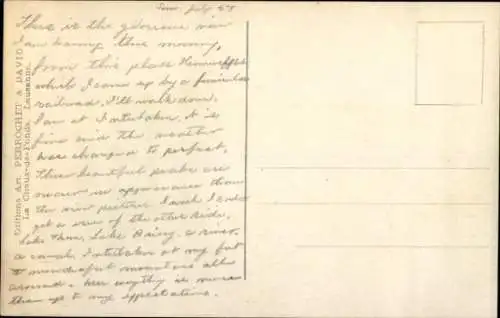 Sun. July 28
This is the glorious view
I am having this morning,
from this place Heimwehfluh
which I came up by a funicular
railroad. I'll walk down.
I am at Interlaken. It is
fine and the weather
has changed to perfect.
These beautiful peaks are
nearer in appearance than
the view picture I wish I could
get a view of the other side,
Lake Thun, Lake Brienz, a river,
a canal, Interlaken at my feet
& wonderful mountains all
around. Here everything is more
than up to my expectations.
Editions Art. PERROCHET & DAVID
La Chaux-de-Fonds, Lausanne.